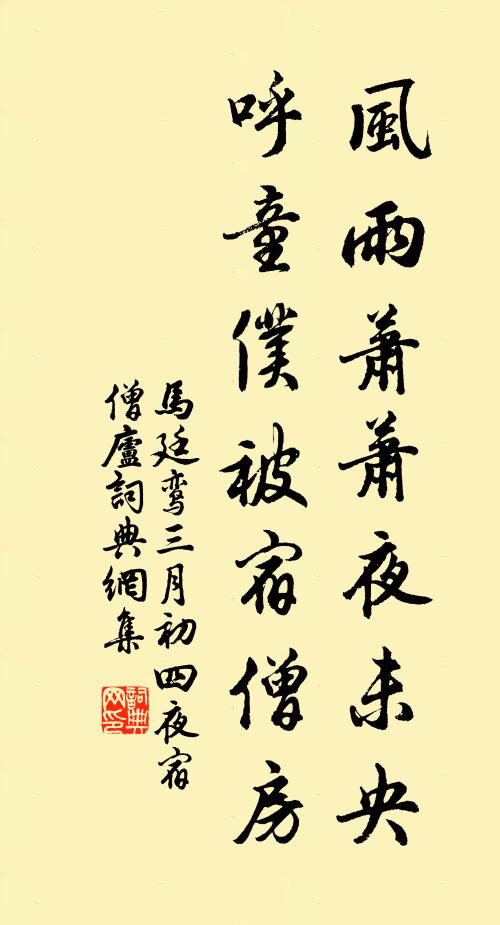 風雨蕭蕭夜未央
呼童僕被宿僧房
馬廷鸾三月初四夜宿
僧廬詞典網集
詞典网印